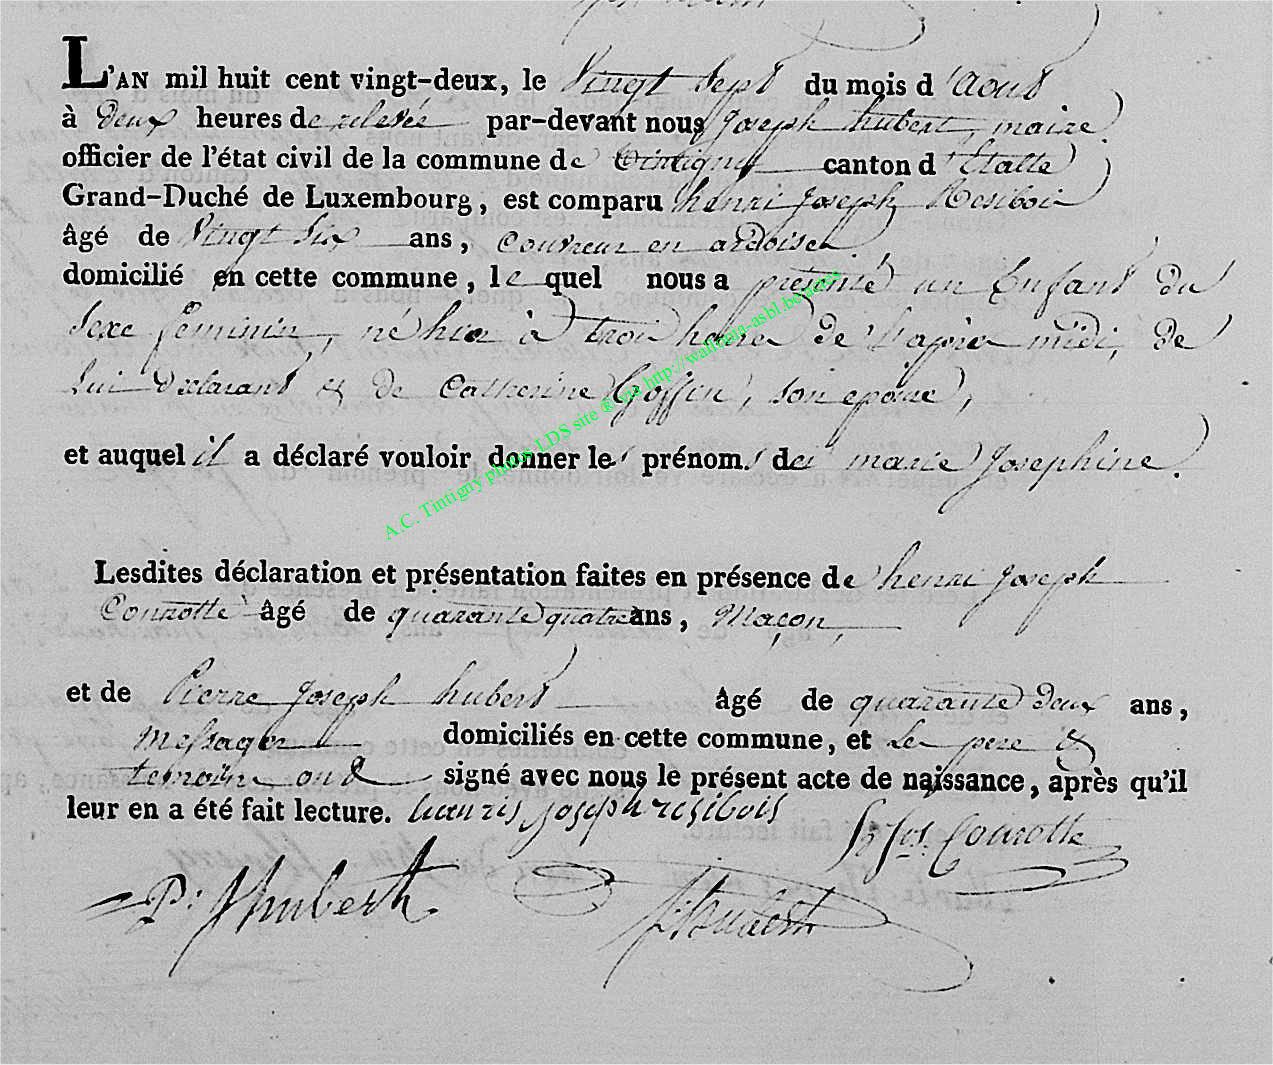 L'AN mil huit cent vingt-deux, le Vingt Sept du mois d'Aout
à deux heures de relevée par-devant nous Joseph hubert, maire
officier de l'état civil de la commune de Tintigny canton d'Etalle
Grand-Duché de Luxembourg, est comparu henri Joseph Resibois
âgé de Vingt Six ans, couvreur en ardoises
domicilié en cette commune, le quel nous a présenté un Enfant du
Sexe féminin, né hier à trois heures de l'après midi, de
lui déclarant et de Catherine Goffin, son epouse,
et auquel il a déclaré vouloir donner les prénoms des marie Josephine.
Lesdites déclaration et présentation faites en présence de henri Joseph
Conrotte âgé de quarante quatre ans, Maçon,
et de Pierre Joseph hubert âgé de quarante deux ans,
Messager domiciliés en cette commune, et Les pere et
temoins ont signé avec nous le présent acte de naissance, après qu'il
leur en a été fait lecture. hanris joseph resibois
h Jos. Conrotte
P. J hubert
J hubert
A.C. Tintigny photos LDS site ® via http://wallonia-asbl.be/actes